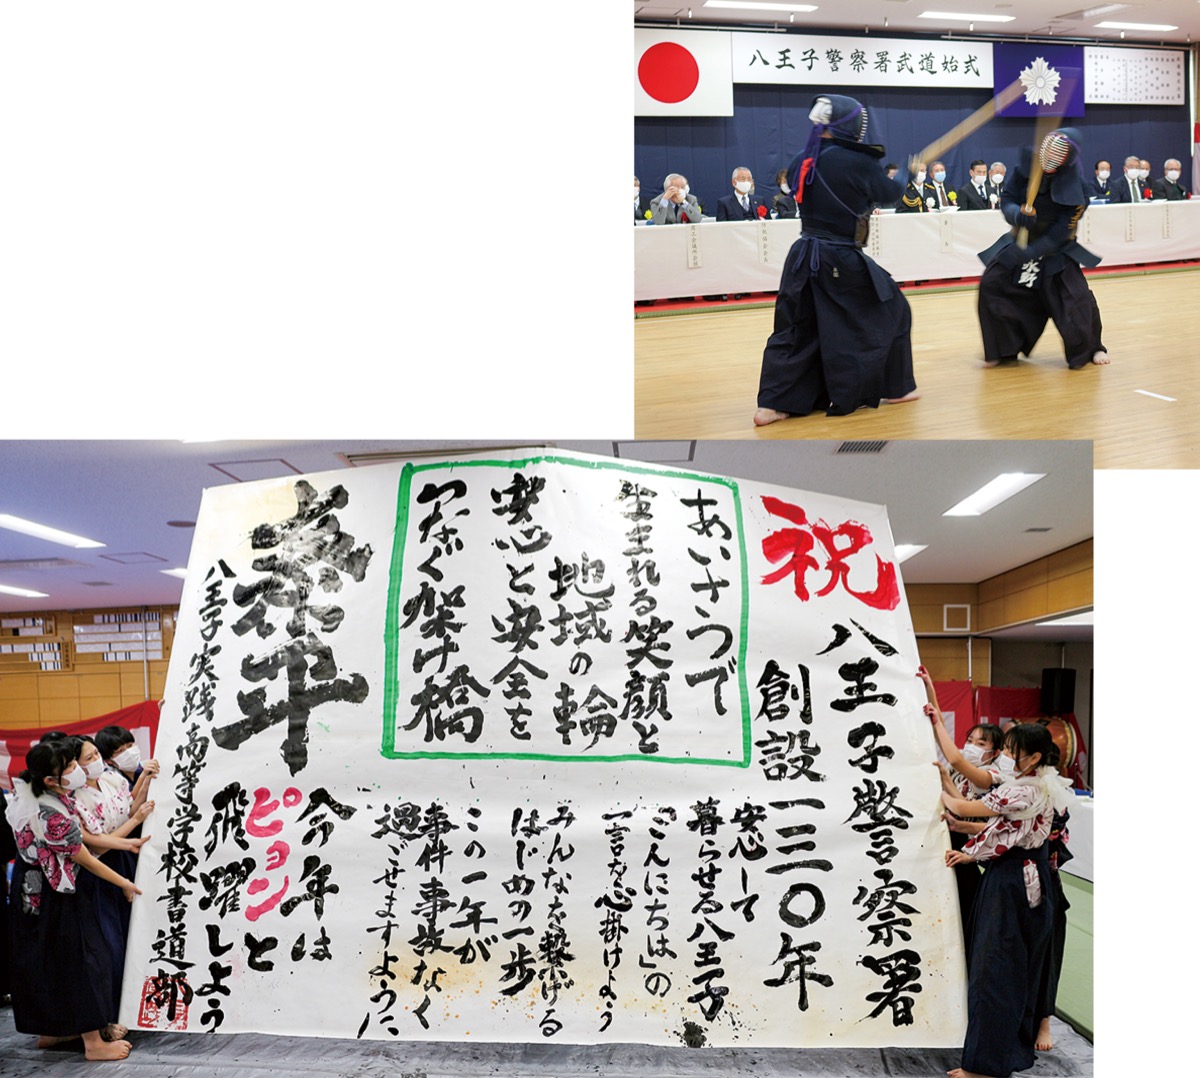 八王子警察署武道始式
水野
祝
八王子警察署
創設一三〇年
あいさつで
生まれる笑顔と
地域の輪
安心と安全を
つなぐ架け橋
安心して
暮らせる八王子
「こんにちは」の
一言を心掛けよう
みんなを繋げる
はじめの一歩
この一年が
事件事故なく
過ごせますように
泰平
今年は
ピョンと
飛躍しよう
八王子実践高等学校書道部